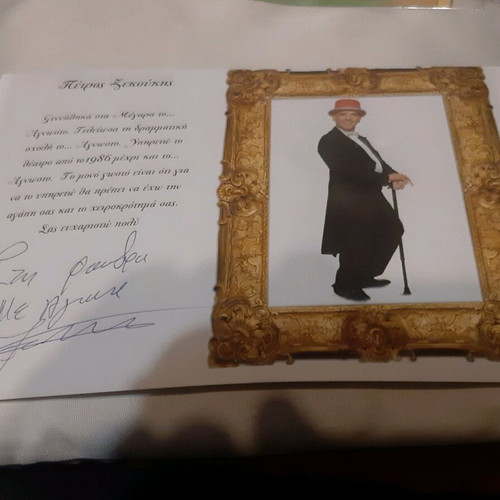 Πέτρος Ξεκούκης
Γεννήθηκα στα Μέγαρα το...
Άγνωστο. Τελείωσα τη δραματική
σχολή το... Άγνωστο. Υπηρετώ το
θέατρο από το 1986 μέχρι και το...
Άγνωστο. Το μόνο γνωστό είναι ότι για
να το υπηρετώ θα πρέπει να έχω την
αγάπη σας και το χειροκρότημά σας.
Σας ευχαριστώ πολύ
Με Αγάπη